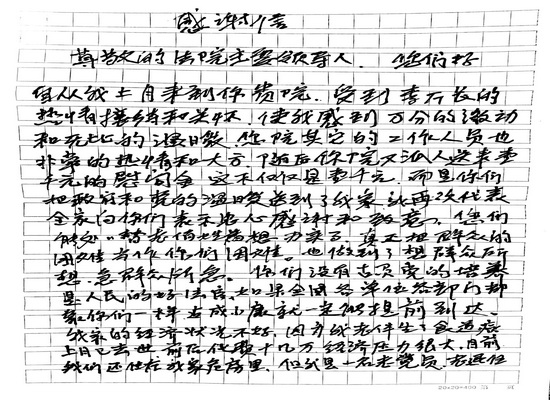 感谢信
尊敬的法院主要领导人. 您们好
自从我上月来到你贵院. 受到李石长的
热情接待和关怀. 使我感到万分的激动
和无比的温暖. 您院其它的工作人员也
非常的热情和大方. 随后你院又派人送来李
千元的慰问金 这不仅仅是李千元. 而是你们
把政府和党的温暖送到了我家. 我再次代表
全家向你们表示衷心感谢和致意. 您们
能处 替老百姓着想. 办实事 真正把群众的
困难当作你们困难. 也做到了想群众所
想. 急群众所急. 你们没有忘党的培养
是人民的好法官. 如果全国各单位各部门都
象你们一样 小康就一定能提前到达.
我家的经济状况不好. 因为我老伴生了食道癌
上月已去世. 前后花费十几万 经济压力很大. 目前
我们还住在我家危房里. 但我是一名老党员. 老退伍
20×20=400